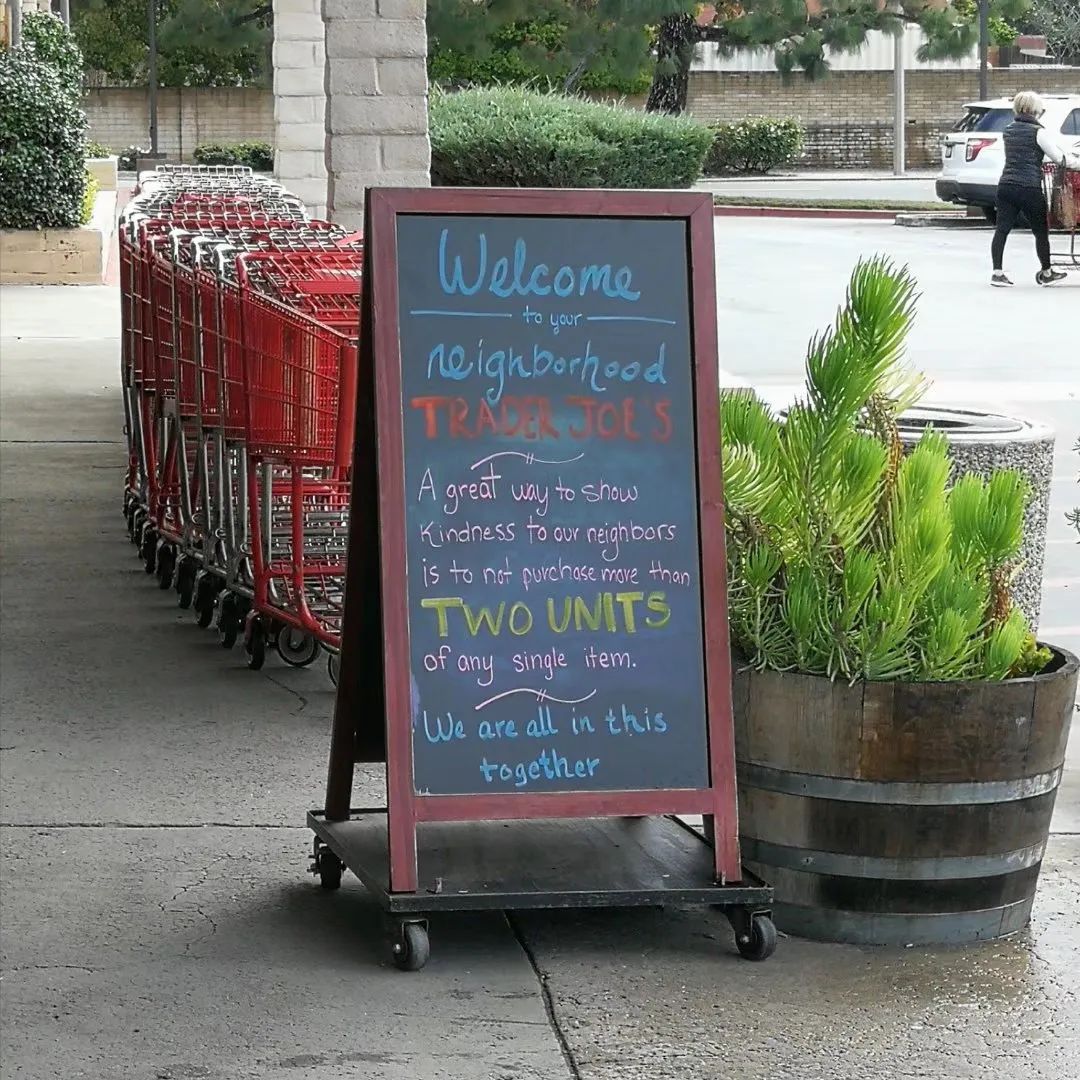 Welcome
to your
neighborhood
TRADER JOE'S
A great way to show
Kindness to our neighbors
is to not purchase more than
TWO UNITS
of any single item.
We are all in this
together